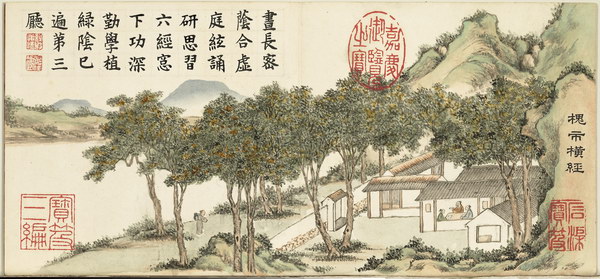 槐市橫經
晝長密
蔭合虛
庭絃誦
研思習
六經窓
下功深
勤學植
綠陰已
遍第三
廳
嘉慶
御覽
之寶
石渠
寶笈
寶笈
三編